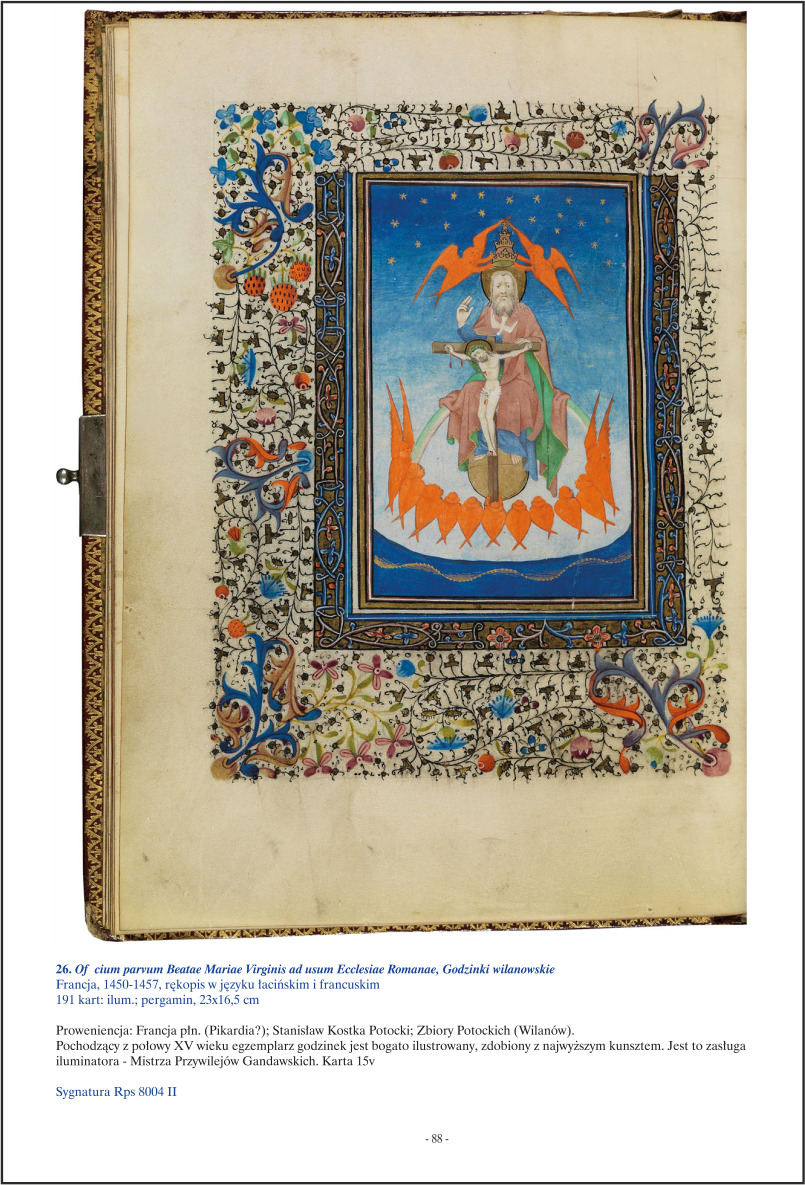 26. Of cium parvum Beatae Mariae Virginis ad usum Ecclesiae Romanae, Godzinki wilanowskie
Francja, 1450-1457, rękopis w języku łacińskim i francuskim
191 kart: ilum.; pergamin, 23x16,5 cm
Proweniencja: Francja płn. (Pikardia?); Stanisław Kostka Potocki; Zbiory Potockich (Wilanów).
Pochodzący z połowy XV wieku egzemplarz godzinek jest bogato ilustrowany, zdobiony z najwyższym kunsztem. Jest to zasługa
iluminatora - Mistrza Przywilejów Gandawskich. Karta 15v
Sygnatura Rps 8004 II
- 88 -